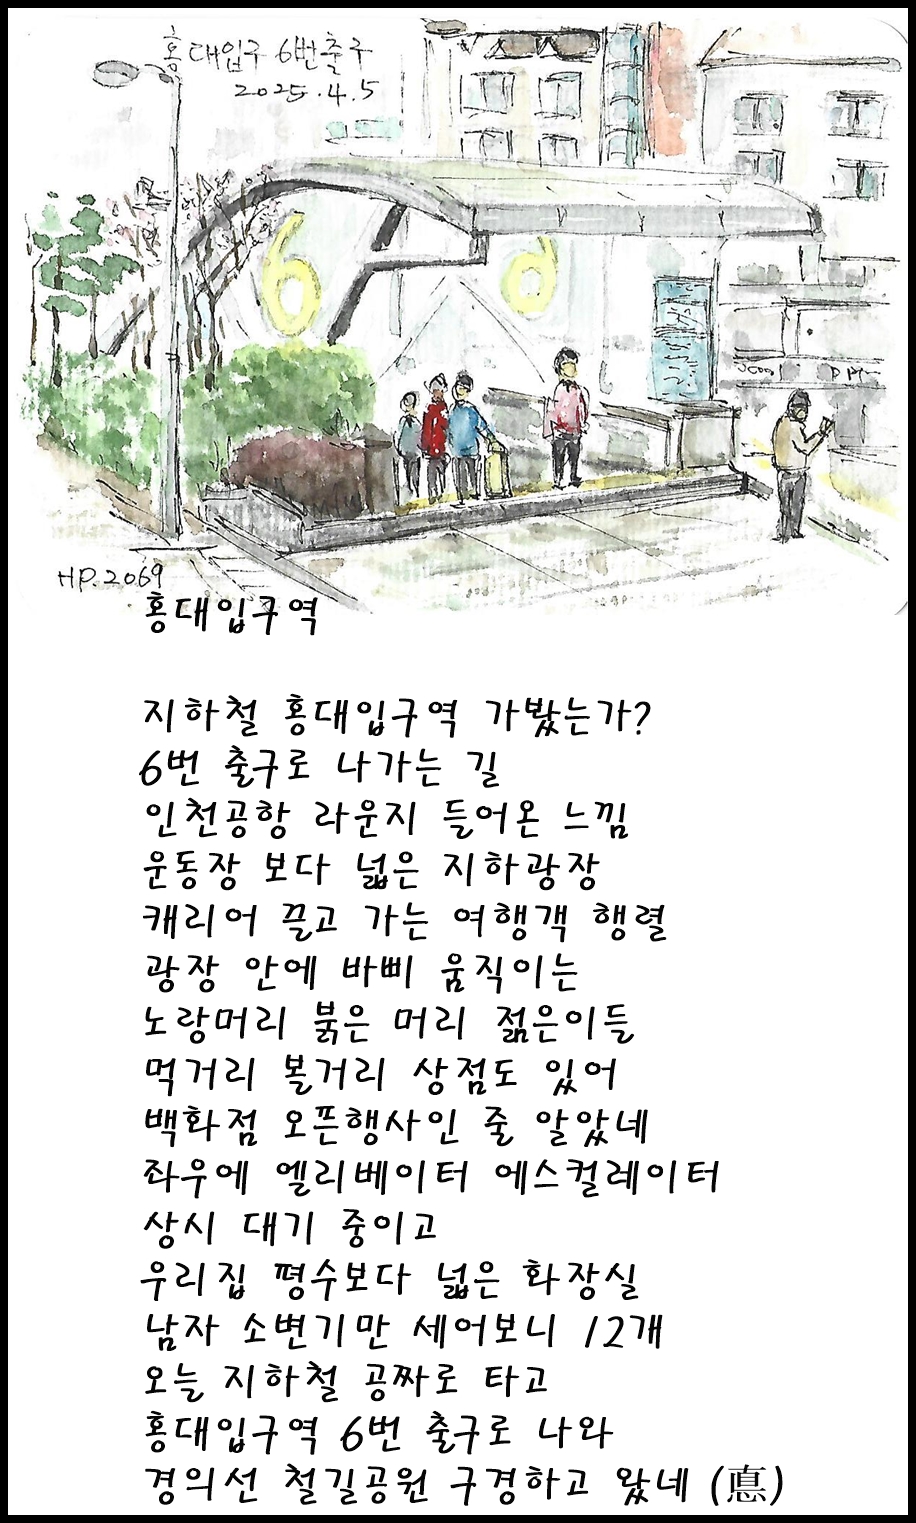 홍대입구 6번출구
2025.4.5
6
HP.2069
홍대입구역
지하철 홍대입구역 가봤는가?
6번 출구로 나가는 길
인천공항 라운지 들어온 느낌
운동장 보다 넓은 지하광장
캐리어 끌고 가는 여행객 행렬
광장 안에 바삐 움직이는
노랑머리 붉은 머리 젊은이들
먹거리 볼거리 상점도 있어
백화점 오픈행사인 줄 알았네
좌우에 엘리베이터 에스컬레이터
상시 대기 중이고
우리집 평수보다 넓은 화장실
남자 소변기만 세어보니 12개
오늘 지하철 공짜로 타고
홍대입구역 6번 출구로 나와
경의선 철길공원 구경하고 왔네 (悳)